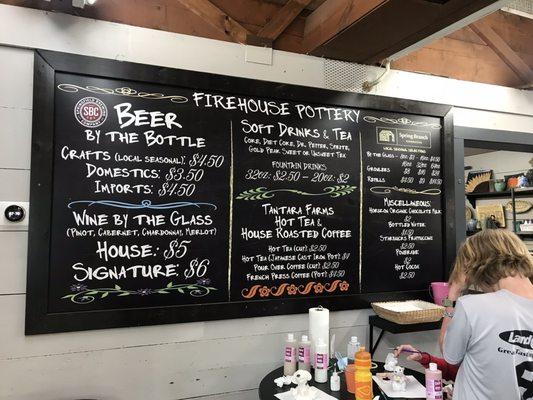 FIREHOUSE POTTERY
SBC
BEER
BY THE BOTTLE
CRAFTS (LOCAL SEASONAL): $4.50
DOMESTICS: $3.50
IMPORTS: $4.50
WINE BY THE GLASS
(PINOT, CABERNET, CHARDONNAY, MERLOT)
HOUSE: $5
SIGNATURE: $6
SOFT DRINKS & TEA
COKE, DIET COKE, DR. PEPPER, SPRITE,
GOLD PEAK SWEET OR UNSWEET TEA
FOUNTAIN DRINKS
32OZ - $2.50 - 20OZ - $2
TANTARA FARMS
HOT TEA &
HOUSE ROASTED COFFEE
HOT TEA (CUP) $2.50
HOT TEA (JAPANESE CAST IRON POT) $7
POUR OVER COFFEE (CUP) $2.50
FRENCH PRESS COFFEE (POT) $4.50
Spring Branch
BY THE GLASS
GROWLERS
REFILLS
MISCELLANEOUS:
HORIZON ORGANIC CHOCOLATE MILK
$2
BOTTLED WATER
$1.50
STARBUCKS FRAPPUCCINO
$2.50
POWERADE
$2
HOT COCOA
$2